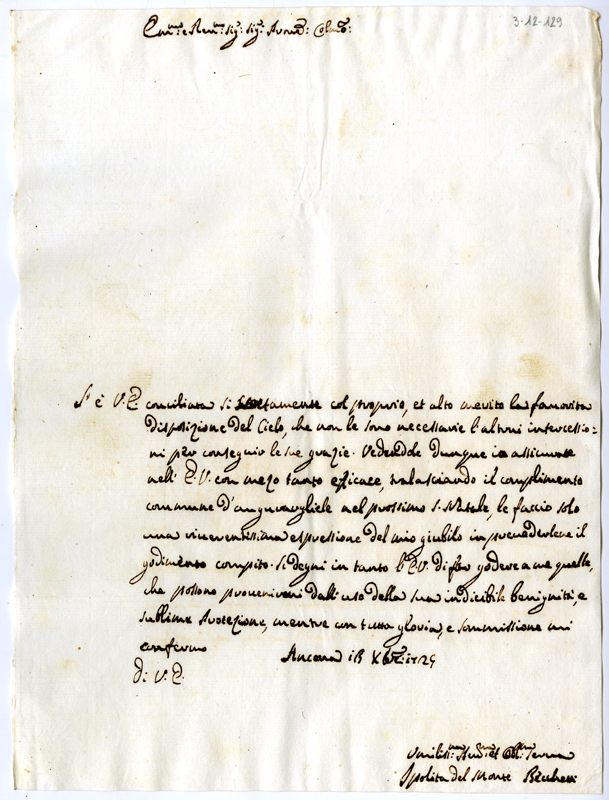 3-12-129
Em.mo e Rev.mo Sig.r Sig.r Pron. Colmo.
S' è V. E. conciliata sì strettamente col proprio, et alto merito la favorita
disposizione del Cielo, che non le sono necessarie l'altrui intercessio=
ni per conseguir le sue grazie. Vedendole dunque io assicurate
nell' E. V. con mezo tanto efficace, tralasciando il complimento
commune d'augurargliele nel prossimo S. Natale, le faccio solo
una riverentissima espressione del mio giubilo in prevedertene il
godimento compito. Si degni in tanto l'E. V. di far godere a me quelle,
che possono provenirmi dall'uso della sua indicibile benignità, e
sublime Protezione, mentre con tutta gloria, e sommissione mi
confermo Ancona 13 Xbre. 1725
Di V. E.
Umiliss.ma Dev.ma et Obl.ma Serva
Ipolita del Monte